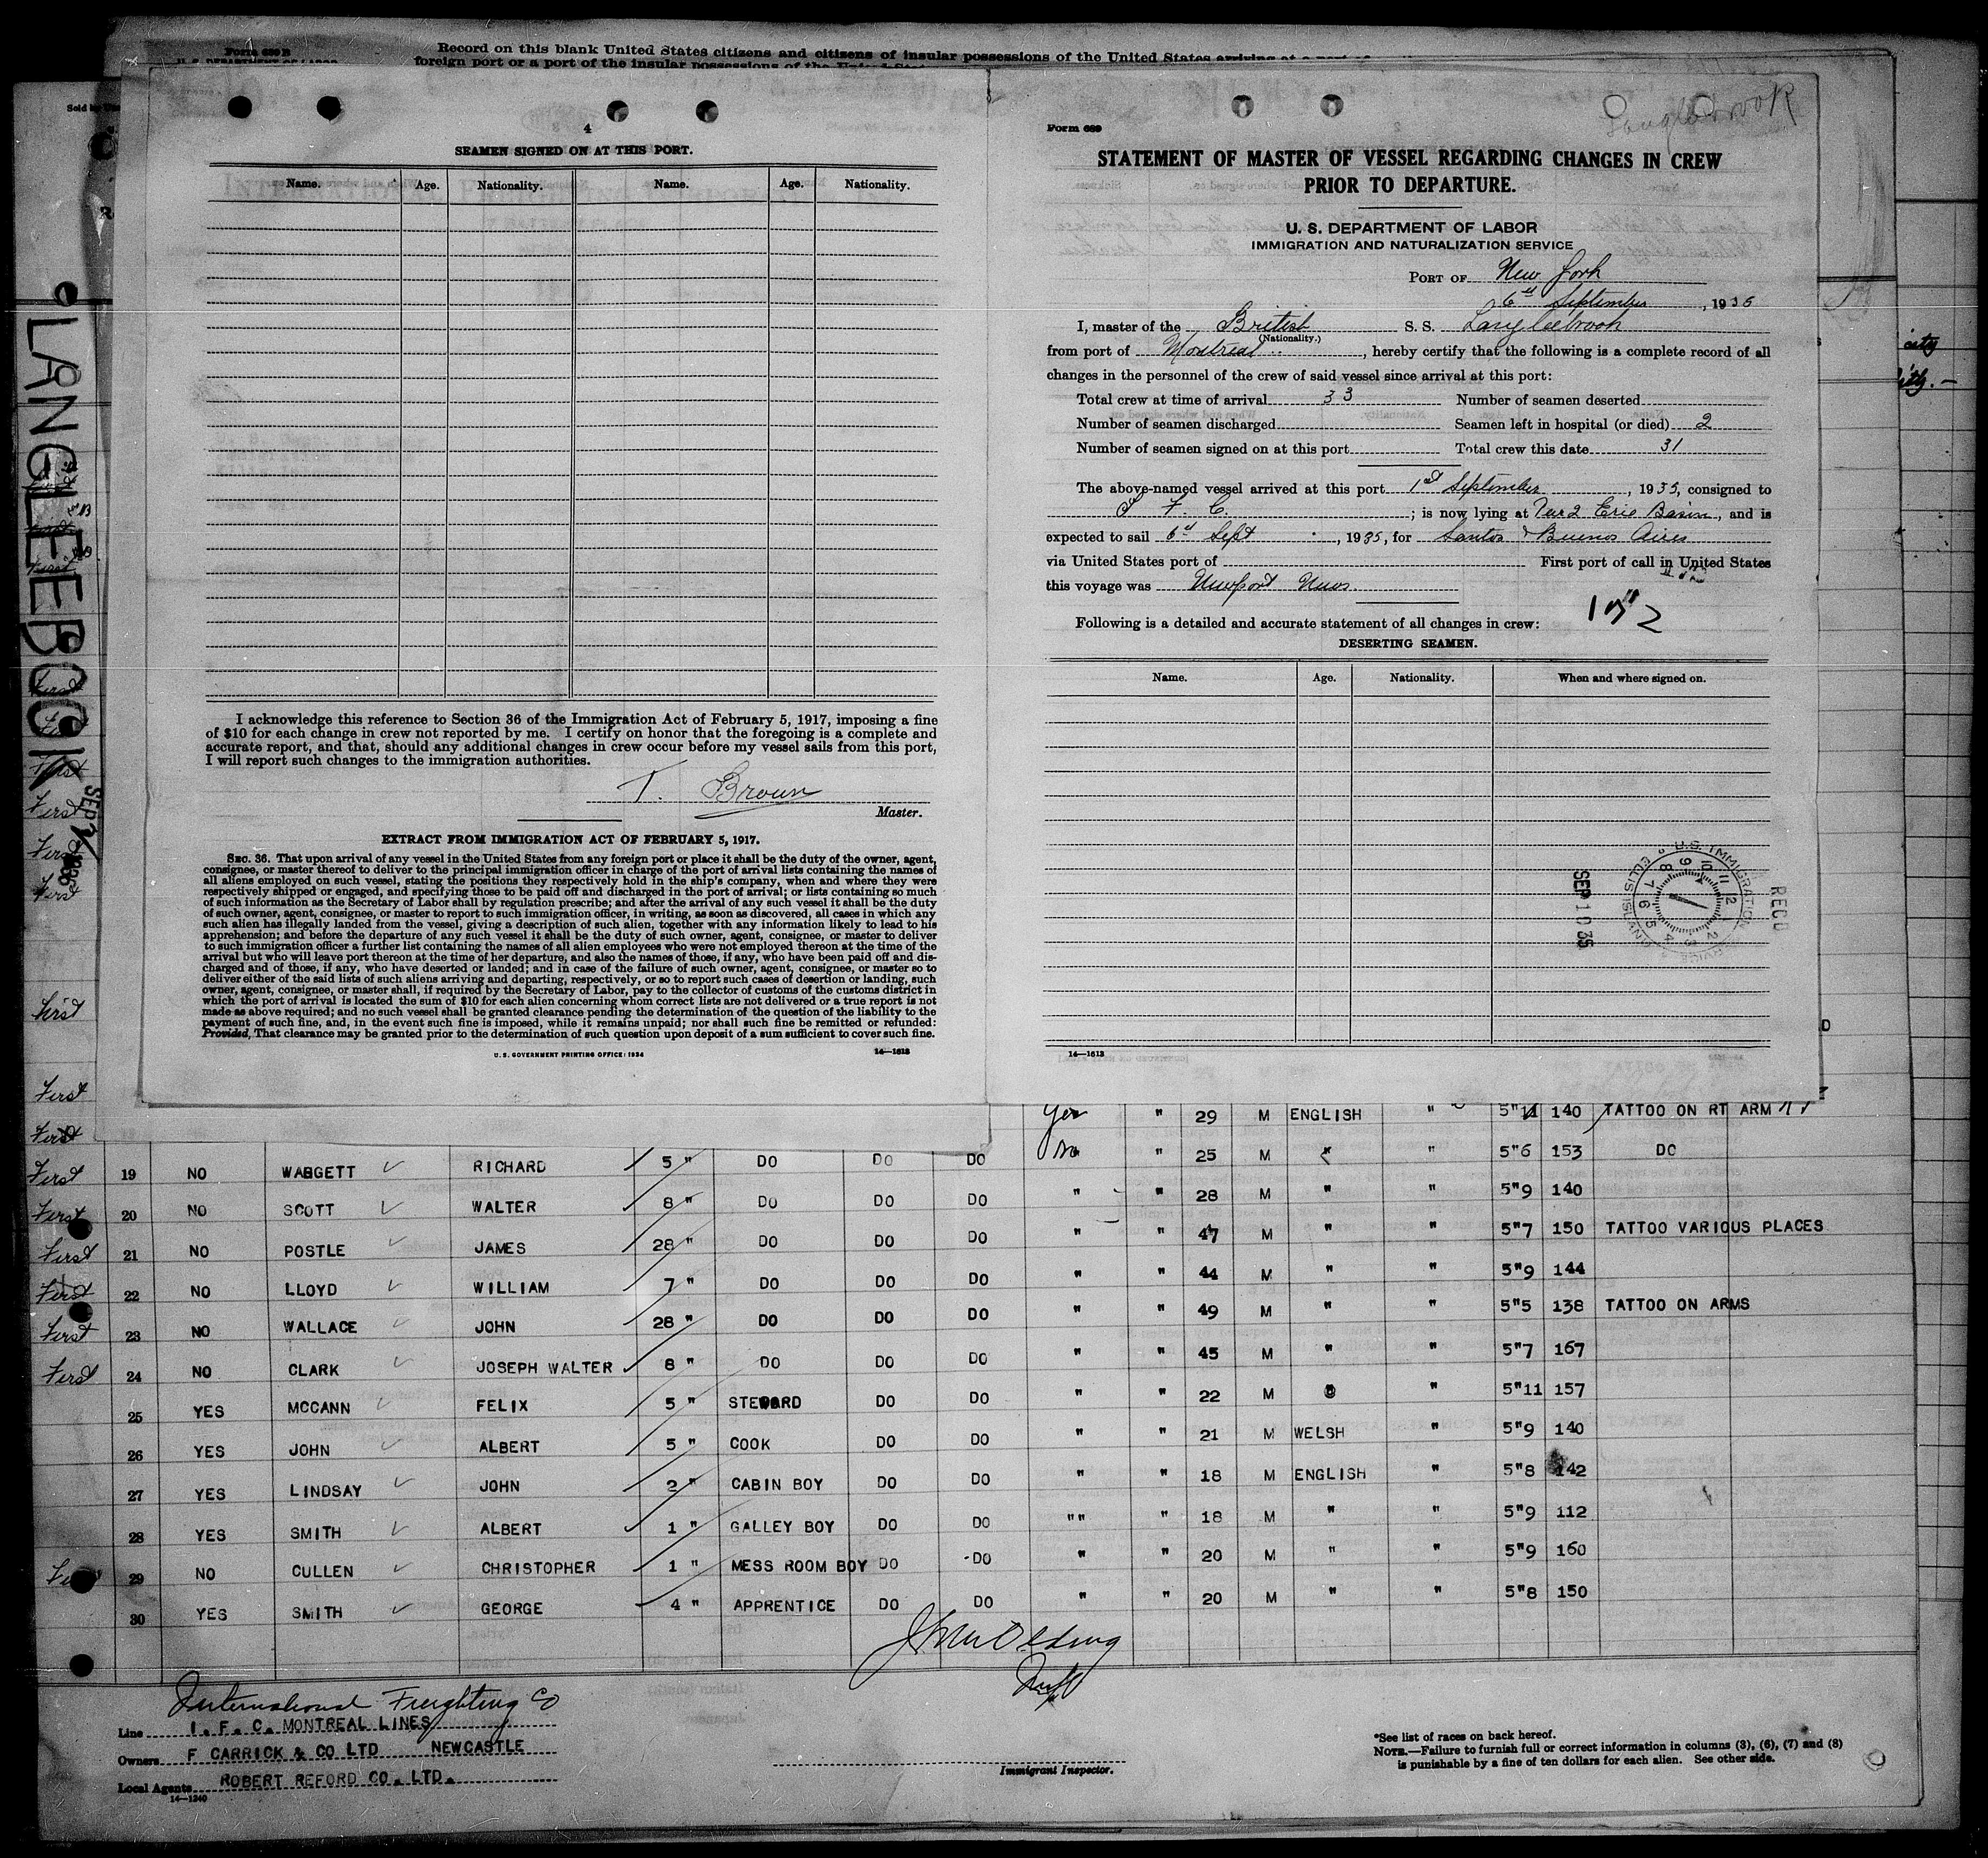 Form 689 B
Record on this blank United States citizens and citizens of insular possessions of the United States arriving at a port
foreign port or a port of the insular possessions of the United
LANGLEEBOOK
4
SEAMEN SIGNED ON AT THIS PORT.
Name. Age. Nationality. Name. Age. Nationality.
I acknowledge this reference to Section 36 of the Immigration Act of February 5, 1917, imposing a fine
of $10 for each change in crew not reported by me. I certify on honor that the foregoing is a complete and
accurate report, and that, should any additional changes in crew occur before my vessel sails from this port,
I will report such changes to the immigration authorities.
T. Brown
Master.
EXTRACT FROM IMMIGRATION ACT OF FEBRUARY 5, 1917.
SEC. 36. That upon arrival of any vessel in the United States from any foreign port or place it shall be the duty of the owner, agent,
consignee, or master thereof to deliver to the principal immigration officer in charge of the port of arrival lists containing the names of
all aliens employed on such vessel, stating the positions they respectively hold in the ship's company, when and where they were
respectively shipped or engaged, and specifying those to be paid off and discharged in the port of arrival; or lists containing so much
of such information as the Secretary of Labor shall by regulation prescribe; and after the arrival of any such vessel it shall be the duty
of such owner, agent, consignee, or master to report to such immigration officer, in writing, as soon as discovered, all cases in which any
such alien has illegally landed from the vessel, giving a description of such alien, together with any information likely to lead to his
apprehension; and before the departure of any such vessel it shall be the duty of such owner, agent, consignee, or master to deliver
to such immigration officer a further list containing the names of all alien employees who were not employed thereon at the time of the
arrival but who will leave port thereon at the time of her departure, and also the names of those, if any, who have been paid off and dis-
charged and of those, if any, who have deserted or landed; and in case of the failure of such owner, agent, consignee, or master so to
deliver either of the said lists of such aliens arriving and departing, respectively, or so to report such cases of desertion or landing, such
owner, agent, consignee, or master shall, if required by the Secretary of Labor, pay to the collector of customs of the customs district in
which the port of arrival is located the sum of $10 for each alien concerning whom correct lists are not delivered or a true report is not
made as above required; and no such vessel shall be granted clearance pending the determination of the question of the liability to the
payment of such fine, and, in the event such fine is imposed, while it remains unpaid; nor shall such fine be remitted or refunded:
Provided, That clearance may be granted prior to the determination of such question upon deposit of a sum sufficient to cover such fine.
U. S. GOVERNMENT PRINTING OFFICE: 1934 14—1613
Form 689
STATEMENT OF MASTER OF VESSEL REGARDING CHANGES IN CREW
PRIOR TO DEPARTURE.
U. S. DEPARTMENT OF LABOR
IMMIGRATION AND NATURALIZATION SERVICE
PORT OF New York
6th September, 1935
I, master of the British S. S. Langleebrook
(Nationality.)
from port of Montreal, hereby certify that the following is a complete record of all
changes in the personnel of the crew of said vessel since arrival at this port:
Total crew at time of arrival 33 Number of seamen deserted
Number of seamen discharged Seamen left in hospital (or died) 2
Number of seamen signed on at this port Total crew this date 31
The above-named vessel arrived at this port 1st September, 1935, consigned to
I F. C. ; is now lying at Pier 2 Erie Basin, and is
expected to sail 6th Sept, 1935, for Santos & Buenos Aires
via United States port of First port of call in United States
this voyage was Newport News
Following is a detailed and accurate statement of all changes in crew:
DESERTING SEAMEN.
Name. Age. Nationality. When and where signed on.
REC'D
U.S. IMMIGRATION SERVICE ELLIS ISLAND
SEP 10 35
14—1613
Yes " 29 M ENGLISH " 5"11 140 TATTOO ON RT ARM
First 19 NO WABGETT RICHARD 5 " DO DO DO No " 25 M " " 5"6 153 DO
First 20 NO SCOTT WALTER 8 " DO DO DO " " 28 M " " 5"9 140
First 21 NO POSTLE JAMES 28 " DO DO DO " " 47 M " " 5"7 150 TATTOO VARIOUS PLACES
First 22 NO LLOYD WILLIAM 7 " DO DO DO " " 44 M " " 5"9 144
First 23 NO WALLACE JOHN 28 " DO DO DO " " 49 M " " 5"5 138 TATTOO ON ARMS
First 24 NO CLARK JOSEPH WALTER 8 " DO DO DO " " 45 M " " 5"7 167
25 YES MCCANN FELIX 5 " STEWARD DO DO " " 22 M " 5"11 157
26 YES JOHN ALBERT 5 " COOK DO DO " " 21 M WELSH " 5"9 140
27 YES LINDSAY JOHN 2 " CABIN BOY DO DO " " 18 M ENGLISH " 5"8 142
28 YES SMITH ALBERT 1 " GALLEY BOY DO DO "" " 18 M " " 5"9 112
29 NO CULLEN CHRISTOPHER 1 " MESS ROOM BOY DO DO " " 20 M " " 5"9 160
30 YES SMITH GEORGE 4 " APPRENTICE DO DO " " 20 M " " 5"8 150
International Freighting Co
Line I. F. C. MONTREAL LINES
Owners F CARRICK & CO LTD NEWCASTLE
Local Agents ROBERT REFORD CO. LTD.
14—1240
Immigrant Inspector.
*See list of races on back hereof.
NOTE.—Failure to furnish full or correct information in columns (3), (6), (7) and (8)
is punishable by a fine of ten dollars for each alien. See other side.